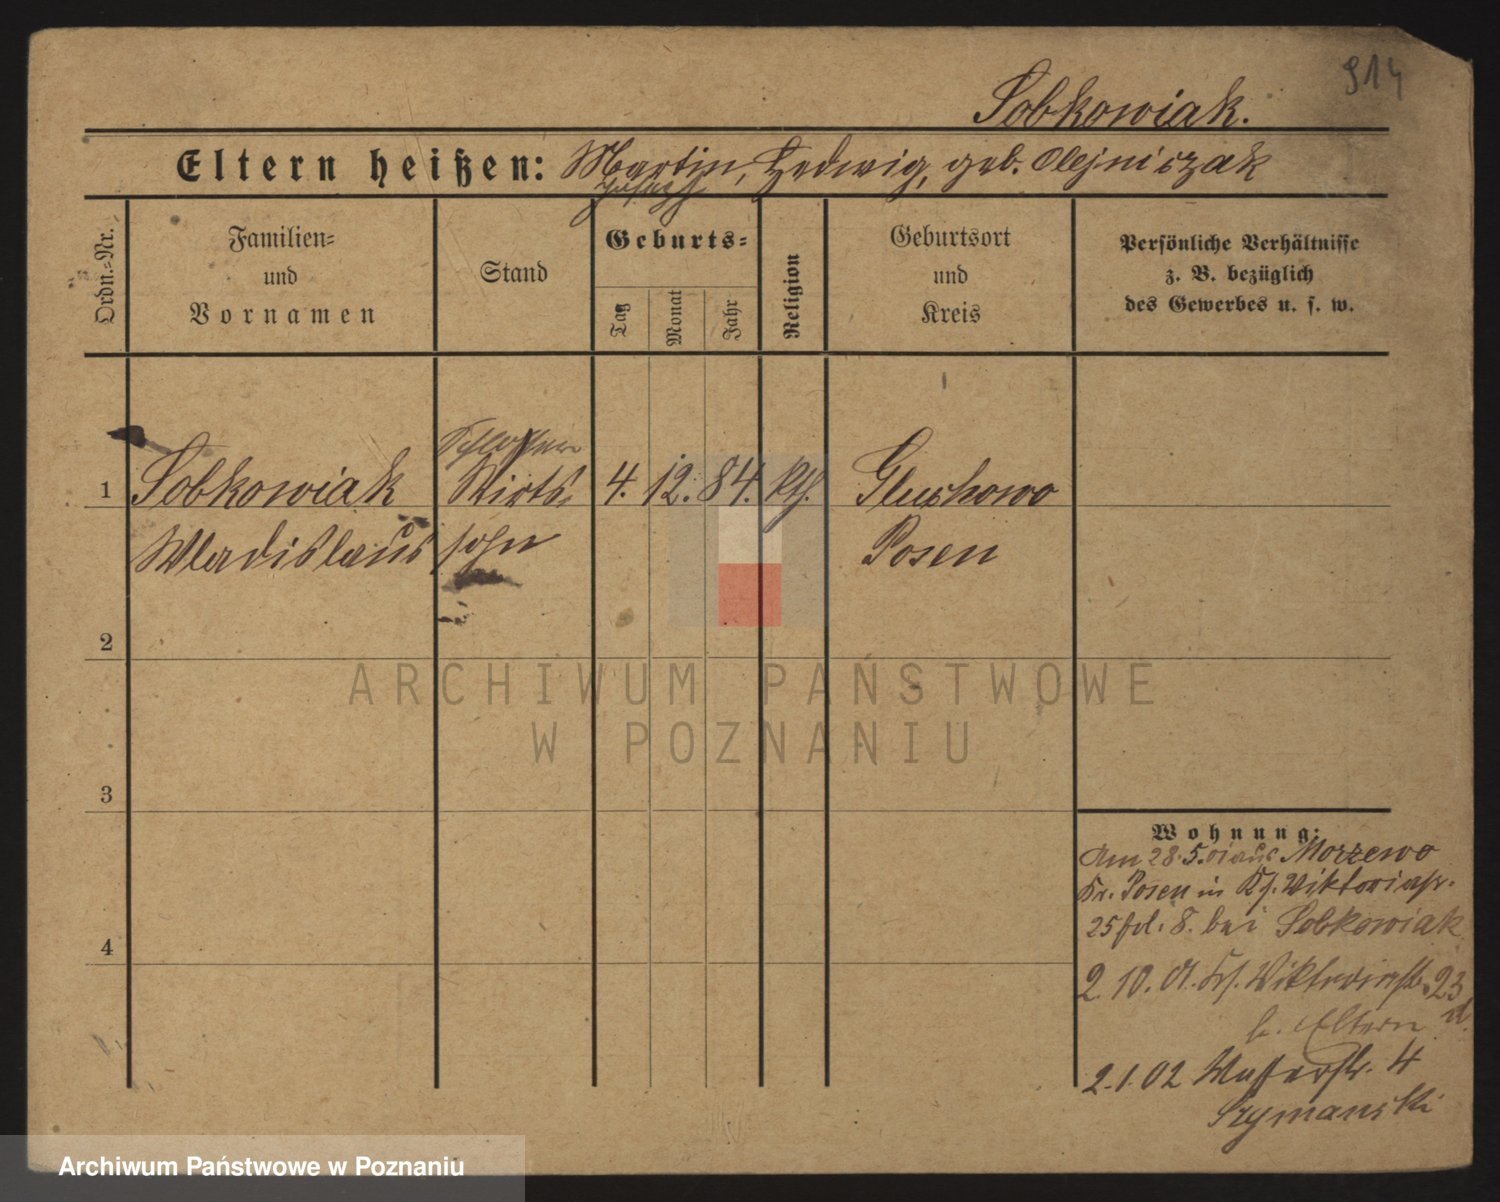 914
Sobkowiak.
Eltern heißen: Martin, Hedwig, geb. Olejniczak
Joseph
Ordn.=Nr.
Familien=
und
Vornamen
Stand
Geburts=
Tag
Monat
Jahr
Religion
Geburtsort
und
Kreis
Persönliche Verhältnisse
z. B. bezüglich
des Gewerbes u. s. w.
Schlosser
1 Sobkowiak Wirts 4. 12. 84. kth. Gluchowo
Wladislaus sohn Posen
2
ARCHIWUM PAŃSTWOWE
W POZNANIU
3
Wohnung:
Am 28.5.01 aus Morzewo
Kr. Posen in Kf. Viktoriastr.
25 bei Sobkowiak
2.10.01. Viktoriastr. 23
b. Eltern
2.1.02 Wasserstr. 4
Szymanski
4
Archiwum Państwowe w Poznaniu